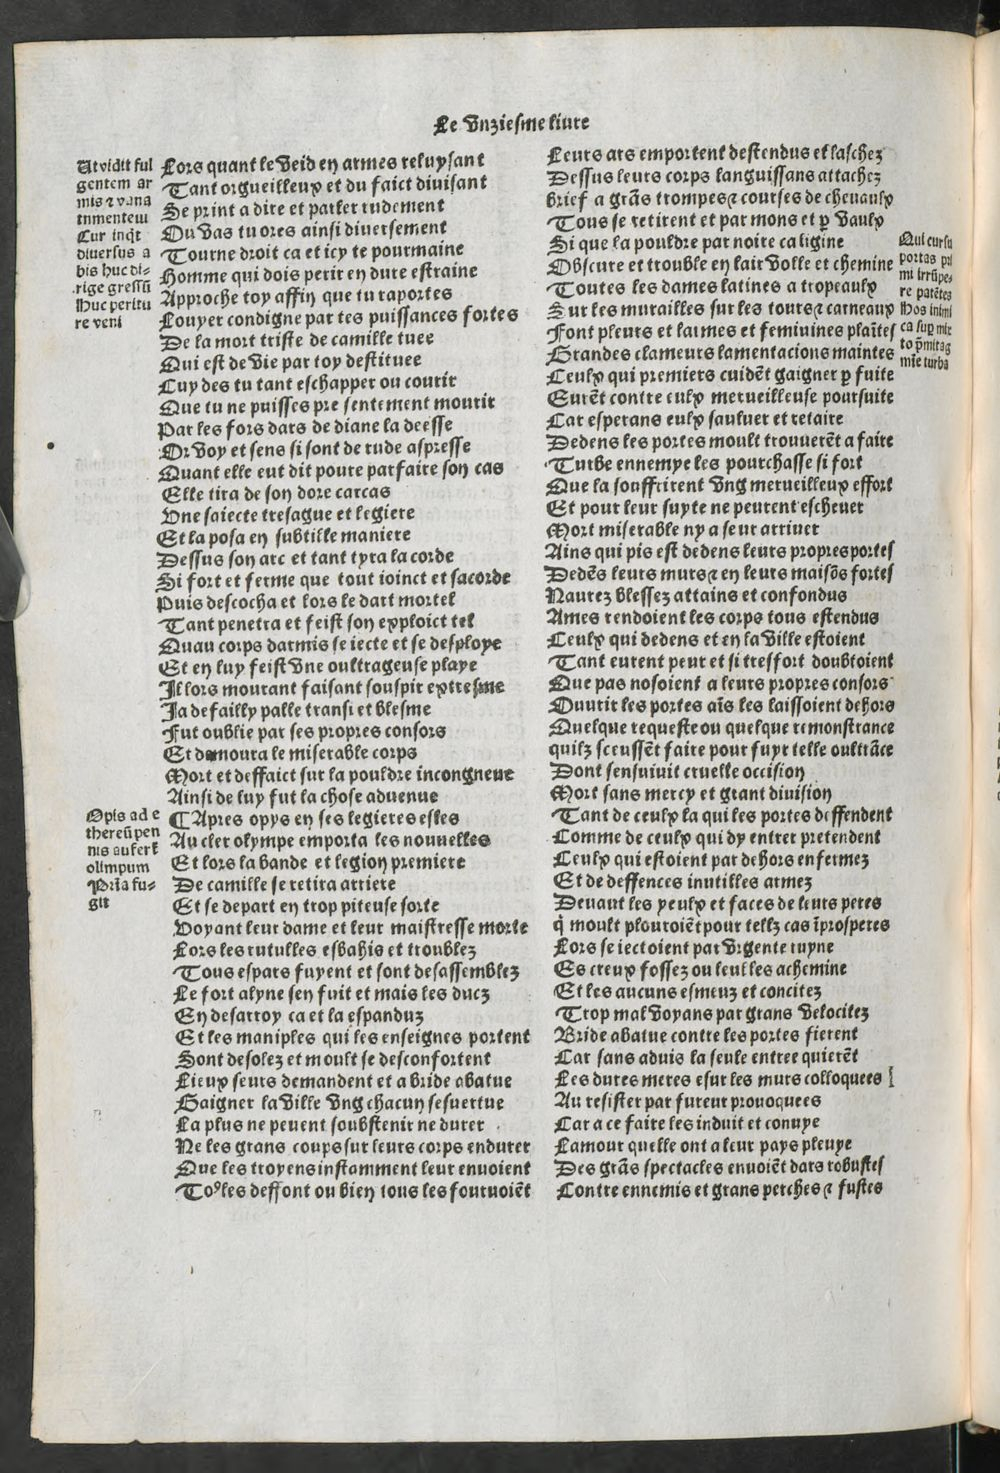 Le unziesme livre
Ut vidit ful
gentem ar
mis ⁊ vana
tumentem
Cur inq̃t
diversus a
bis huc di-
rige gressũ
Huc peritu
re veni
Lors quant le veid en armes reluysant
Tant orgueilleux et du faict divisant
Se print a dire et parler rudement
Ou vas tu ores ainsi diversement
Tourne droit ca et icy te pourmaine
Homme qui dois perir en dure estraine
Approche toy affin que tu raportes
Louyer condigne par tes puissances fortes
De la mort triste de camille tuee
Qui est de vie par toy destituee
Cuydes tu tant eschapper ou courir
Que tu ne puisses pre sentement mourir
Par les fors dars de diane la deesse
Or voy et sens si sont de rude aspresse
Quant elle eut dit poure parfaire son cas
Elle tira de son dore carcas
Une saiecte tresague et legiere
Et la posa en subtille maniere
Dessus son arc et tant tyra la corde
Si fort et ferme que tout ioinct et sacorde
Puis descocha et lors le dart mortel
Tant penetra et feist son exploict tel
Quau corps darmis se iecte et se desploye
Et en luy feist une oultrageuse playe
Il lors mourant faisant souspir extresme
Ja defailly palle transi et blesme
Fut oublie par ses propres consors
Et demoura le miserable corps
Mort et deffaict sur la pouldre incongneue
Ainsi de luy fut la chose advenue
Opis ad e
thereũ pen
nis aufert
olimpum
Prĩa fu-
git
¶ Apres opys en ses legieres esles
Au cler olympe emporta les nouvelles
Et lors la bande et legion premiere
De camille se retira arriere
Et se depart en trop piteuse sorte
Voyant leur dame et leur maistresse morte
Lors les rutulles esbahis et troublez
Tous espars fuyent et sont desassemblez
Le fort atyne sen fuit et mais les ducz
En desarroy ca et la espanduz
Et les maniples qui les enseignes portent
Sont desolez et moult se desconfortent
Lieux seurs demandent et a bride abatue
Gaigner la ville ung chacun sesvertue
La plus ne peuent soubstenir ne durer
Ne les grans coups sur leurs corps endurer
Que les troyens instamment leur envoient
Toꝰ les deffont ou bien tous les fourvoiẽt
Leurs ars emportent destendus et laschez
Dessus leurs corps languissans attachez
brief a grãs trompes ⁊ courses de chevaulx
Tous se retirent et par mons et ꝑ vaulx
Si que la pouldre par noire caligine
Obscure et trouble en lair volle et chemine
Toutes les dames latines a tropeaulx
Sur les murailles sur les tours ⁊ carneaux
Font pleurs et larmes et feminines plaĩtes
Grandes clameurs lamentacions maintes
Ceulx qui premiers cuidẽt gaigner ꝑ fuite
Eurẽt contre eulx merveilleuse poursuite
Car esperans eulx saulver et retaire
Dedens les portes moult trouverẽt a faire
Turbe ennemye les pourchasse si fort
Que la souffrirent ung merveilleux effort
Et pour leur fuyte ne peurent eschever
Mort miserable ny a seur arriver
Ains qui pis est dedens leurs propres portes
Dedẽs leurs murs ⁊ en leurs maisõs fortes
Navrez blessez attains et confondus
Ames rendoient les corps tous estendus
Ceulx qui dedens et en la ville estoient
Tant eurent peur et si tresfort doubtoient
Que pas nosoient a leurs propres consors
Ouvrir les portes aĩs les laissoient dehors
Quelque requeste ou quelque remonstrance
quilz sceussẽt faire pour fuyr telle oultrãce
Dont sensuivit cruelle occision
Mort sans mercy et grant division
Tant de ceulx la qui les portes deffendent
Comme de ceulx qui dy entrer pretendent
Ceulx qui estoient par dehors enfermez
Et de deffences inutilles armez
Devant les yeulx et faces de leurs peres
q̃ moult plouroiẽt pour telz cas ĩprosperes
Lors se iectoient par urgente ruyne
Es creux fossez ou leul les achemine
Et les aucuns esmeuz et concitez
Trop mal voyans par grans velocitez
Bride abatue contre les portes fierent
Car sans advis la seule entree quierẽt
Les dures meres esur les murs colloquees
Au resister par fureur provoquees
Car a ce faire les induit et convye
Lamour quelle ont a leur pays pleuye
Des grãs spectacles envoiẽt dars robustes
Contre ennemis et grans perches ⁊ fustes
Qui cursu
portas pri
mi irrũpe-
re patẽtes
Hos inimi
ca suꝑ mix
to p̃mit ag
mĩe turba